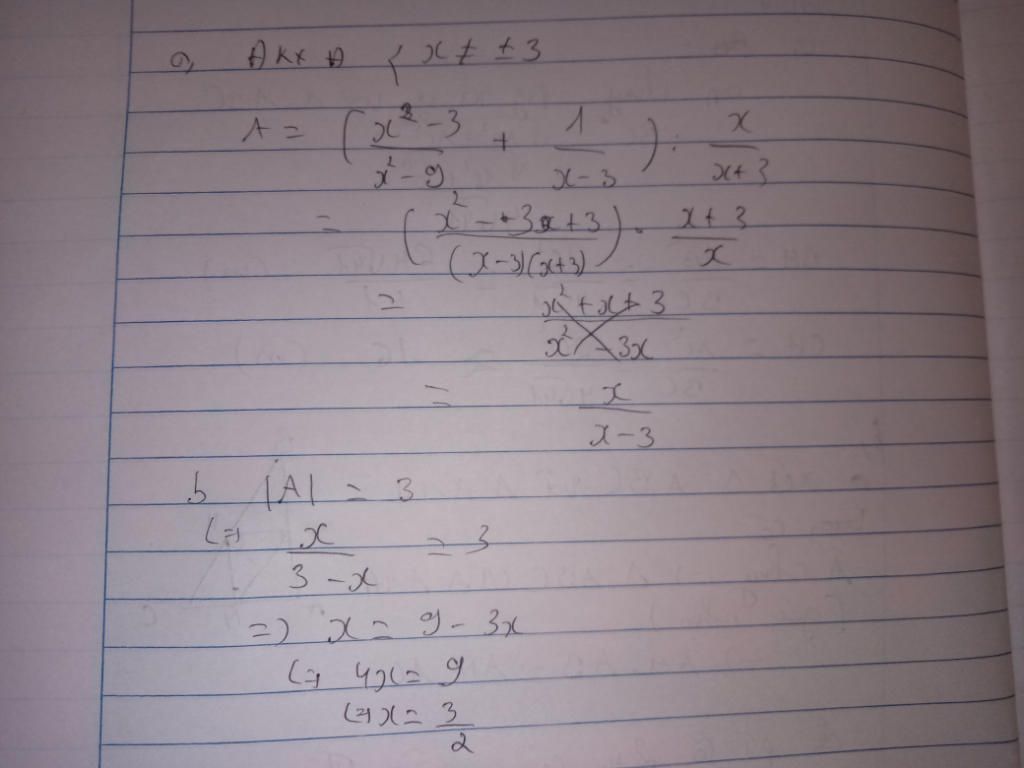 a, ĐKXĐ { x ≠ ±3
A = (x² - 3 / x² - 9 + 1 / x - 3) : x / x + 3
= (x² - 3 + x + 3 / (x - 3)(x + 3)) . x + 3 / x
= x² + x + 3 / x² - 3x
= x / x - 3
b |A| = 3
(=) x / 3 - x = 3
=) x = 9 - 3x
(=) 4x = 9
(=) x = 3 / 2